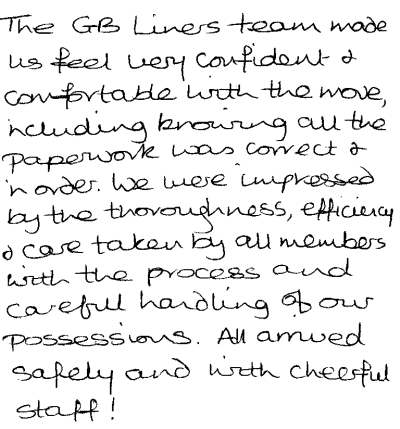 The GB Liners team made
us feel very confident &
comfortable with the move,
including knowing all the
paperwork was correct &
in order. We were impressed
by the thoroughness, efficiency
& care taken by all members
with the process and
careful handling of our
possessions. All arrived
safely and with cheerful
staff!